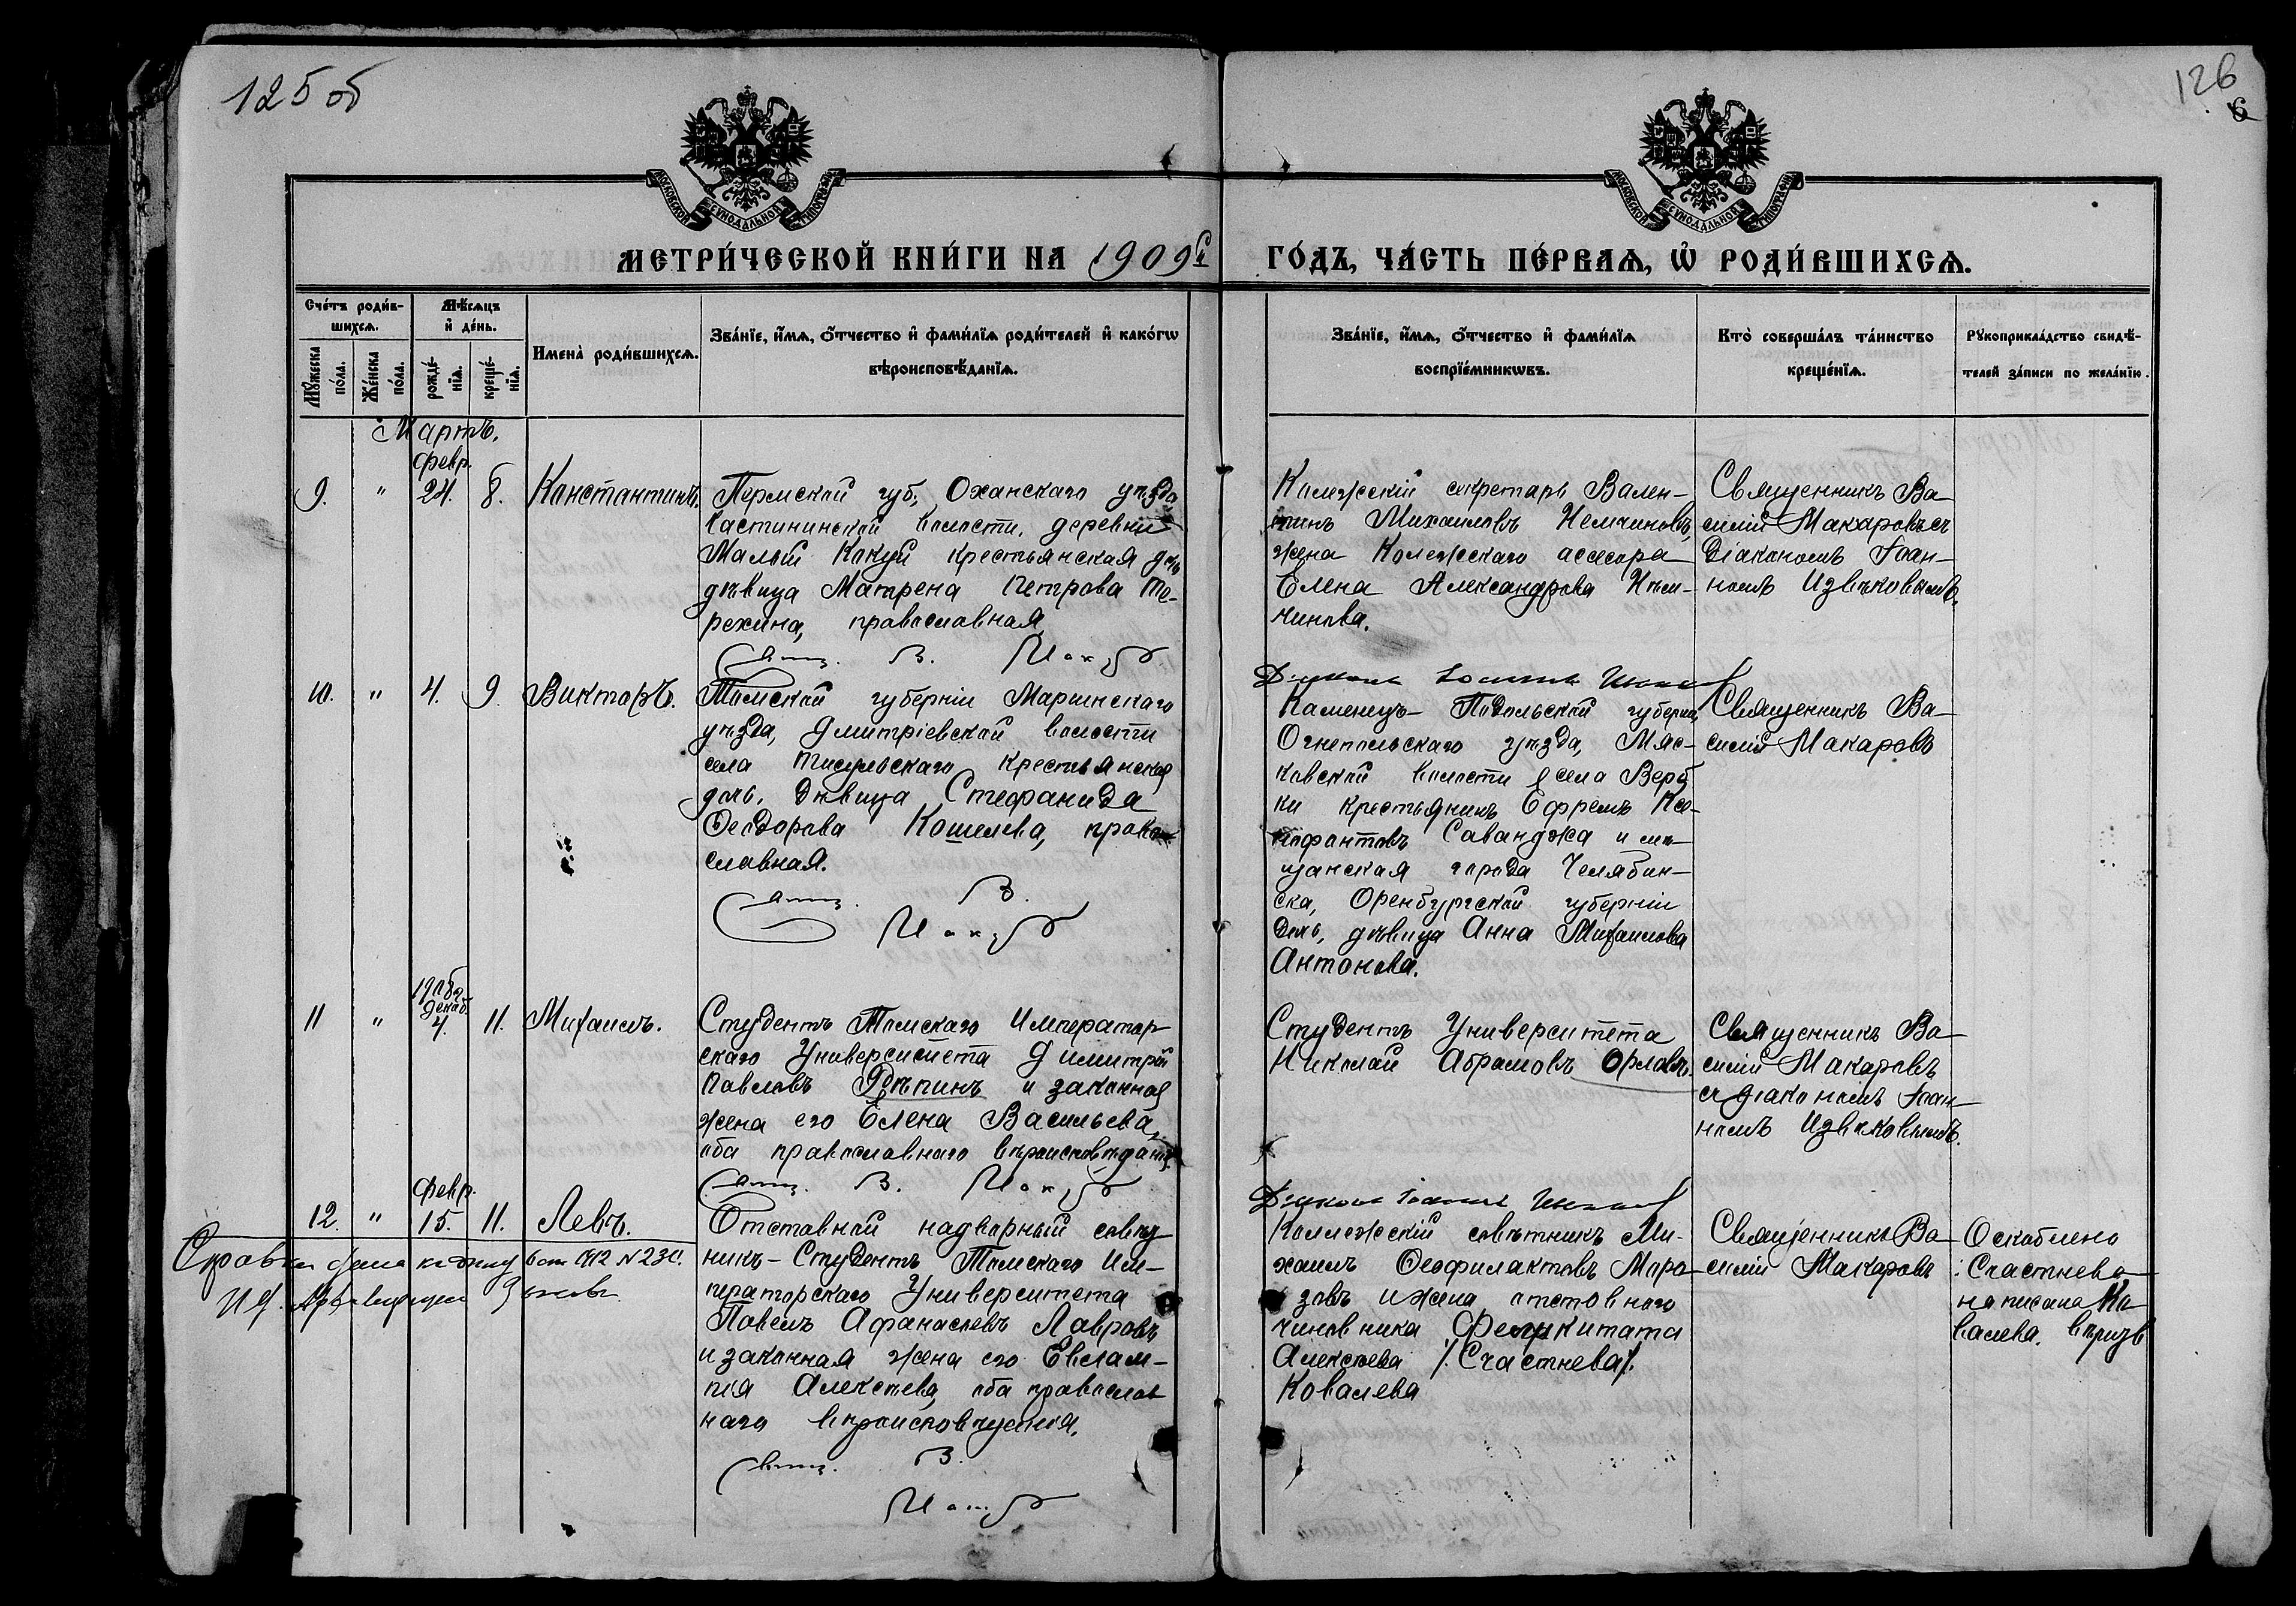 125 об
126
6
МОСКОВСКОЙ СѴНОДАЛЬНОЙ ТИПОГРАФІИ
МОСКОВСКОЙ СѴНОДАЛЬНОЙ ТИПОГРАФІИ
МЕТРИ́ЧЕСКОЙ КНИ́ГИ НА 1909й
ГО́ДЪ, ЧА́СТЬ ПЕ́РВАѦ, Ѡ РОДИ́ВШИХСѦ.
Сче́тъ роди́в-
шихсѧ.
Мѣ́сѧцъ
и҆ де́нь.
Мꙋ́жеска
по́ла.
Же́нска
по́ла.
рожде́-
нїѧ.
креще́-
нїѧ.
Имена̀ роди́вшихсѧ.
Зва́нїе, и҆́мѧ, ѻ҆́тчество и҆ фами́лїѧ роди́телей и҆ како́гѡ
вѣроисповѣ́данїѧ.
Зва́нїе, и҆́мѧ, ѻ҆́тчество и҆ фами́лїѧ
воспрїе́мникѡвъ.
Кто̀ соверша́лъ та́инство
креще́нїѧ.
Рꙋкоприкла́дство свидѣ́-
телей за́писи по жела́нїю.
Мартъ.
февр.
9. " 24. 8. Константинъ.
Пермской губ., Оханскаго уѣзда
Частининской волости, деревни
Малый Кокуй крестьянская дчь
дѣвица Матрена Петрова Те-
рехина, православная
Коллежскій секретарь Вален-
тинъ Михаиловъ Немчиновъ,
жена Коллежскаго ассесора
Елена Александрова Нѣм-
чинова.
Священникъ Ва-
силій Макаровъ съ
Діакономъ Іоан-
номъ Извѣковымъ.
Свящ. В. Мак
Діаконъ Іоаннъ
10. " 4. 9. Викторъ.
Томской губерніи Маріинскаго
уѣзда, Дмитріевской волости
села Тисульскаго крестьянская
дочь, дѣвица Стефанида
Ѳеодорова Кошелева, право-
славная.
Свящ. В.
Мак
Каменецъ-Подольской губерніи,
Огнепольскаго уѣзда, Мяс-
ковской волости села Верб
ки крестьянинъ Ефремъ Ксе-
нофонтовъ Саванджа и мѣ-
щанская города Челябин-
ска, Оренбургской губерніи
дочь, дѣвица Анна Михаилова
Антонова.
Священникъ Ва-
силій Макаровъ
1908г.
декаб.
11 " 4. 11. Михаилъ.
Студентъ Томскаго Император
скаго Университета Димитрій
Павловъ Рѣпинъ и законная
жена его Елена Васильева,
оба православнаго вѣроисповѣданія.
Свящ. В. Мак
Студентъ Университета
Николай Абрамовъ Орловъ.
Священникъ Ва-
силій Макаровъ
съ діакономъ Іоан-
номъ Извѣковымъ.
Діаконъ Іоаннъ
февр.
12. " 15. 11. Левъ.
Справка дана N 230.
Отставной надворный совѣт
никъ - Студентъ Томскаго Им-
ператорскаго Университета
Павелъ Афанасьевъ Лавровъ
и законная жена его Евлам-
пія Алексѣева, оба православ
наго вѣроисповѣданія.
Свящ. В.
Мак
Коллежскій совѣтникъ Ми-
хаилъ Ѳеофилактовъ Моро-
зовъ и жена отставнаго
чиновника
Алексѣева /. Счастнева/.
Ковалева
Священникъ Ва-
силій Макаровъ
Оскоблено
: Счастнева
написано Ко-
валева.